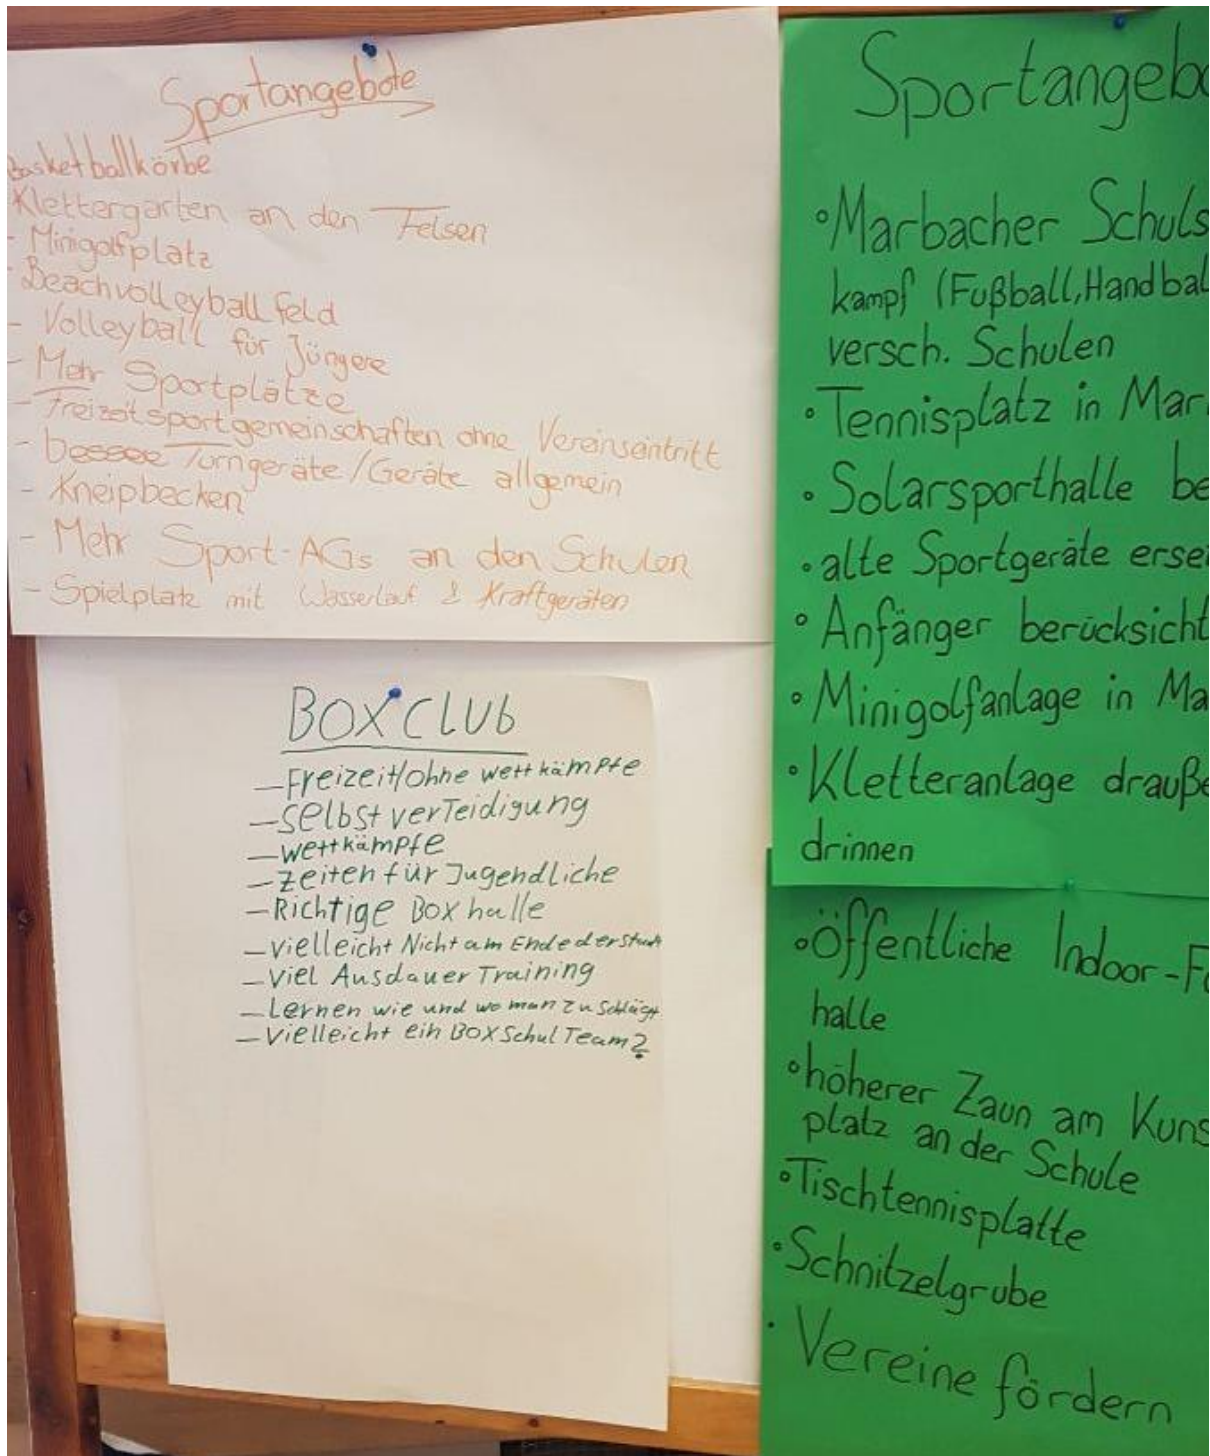 Sportangebote
Basketballkörbe
Klettergarten an den Felsen
- Minigolfplatz
- Beachvolleyballfeld
- Volleyball für Jüngere
- Mehr Sportplätze
- Freizeitsportgemeinschaften ohne Vereinseintritt
- bessere Turngeräte/Geräte allgemein
- Kneipbecken
- Mehr Sport-AGs an den Schulen
- Spielplatz mit Wasserlauf & Kraftgeräten
BOX CLUb
- Freizeit/ohne wettkämpfe
- Selbst verTeidigung
- wettkämpfe
- Zeiten für Jugendliche
- Richtige Box halle
- Vielleicht Nicht am Ende der Stadt
- Viel Ausdauer Training
- Lernen wie und wo man zu schlägt
- Vielleicht ein BOX Schul Team?
Sportangebo
• Marbacher Schuls
kampf (Fußball, Handbal
versch. Schulen
• Tennisplatz in Mar
• Solarsporthalle be
• alte Sportgeräte erse
• Anfänger berücksicht
• Minigolfanlage in Ma
• Kletteranlage drauße
drinnen
• öffentliche Indoor-F
halle
• höherer Zaun am Kuns
platz an der Schule
• Tischtennisplatte
• Schnitzelgrube
• Vereine fördern